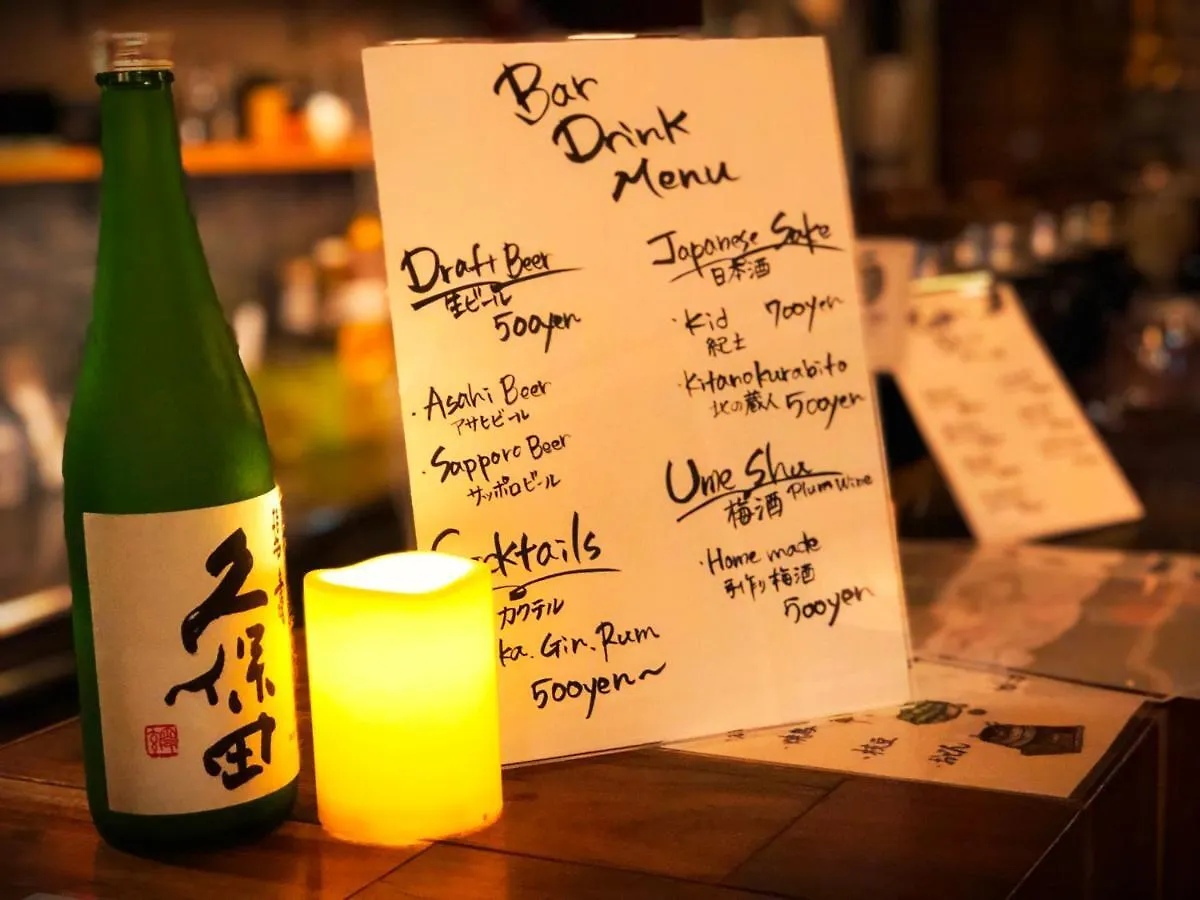 久保田
Bar
Drink
Menu
Draft Beer
生ビール
500yen
・Asahi Beer
アサヒビール
・Sapporo Beer
サッポロビール
Cocktails
カクテル
ka. Gin. Rum
500yen~
Japanese Sake
日本酒
・Kid 700yen
紀土
・Kitanokurabito
北の蔵人 500yen
Ume Shu
梅酒 Plum wine
・Home made
手作り梅酒
500yen